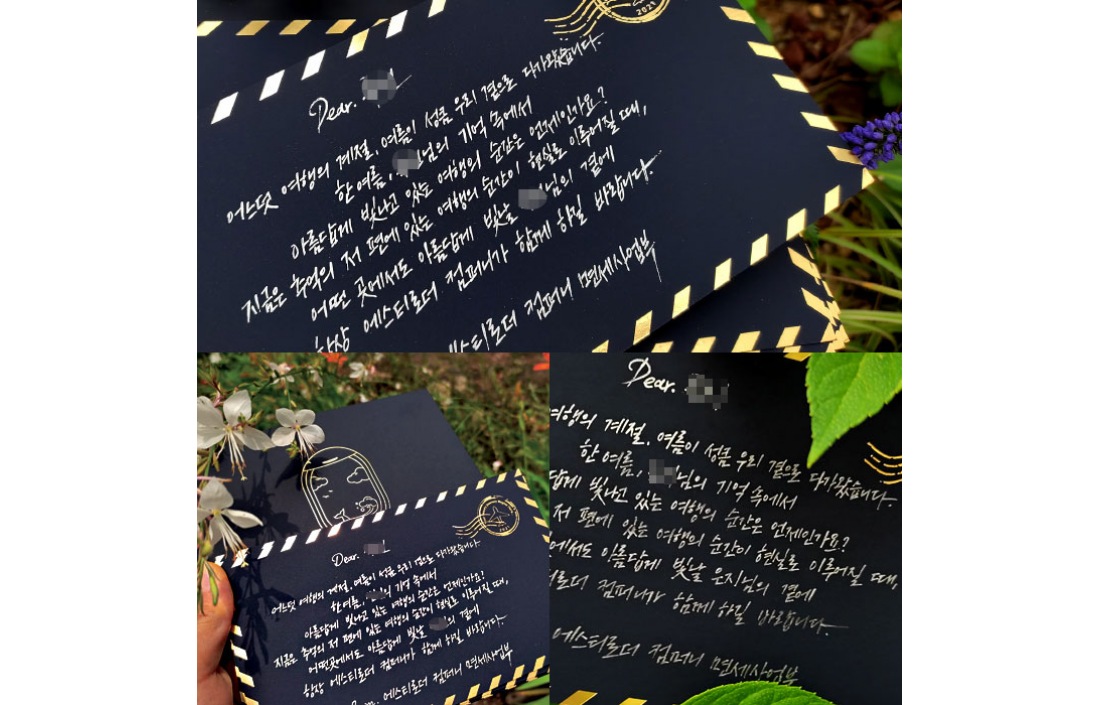 2021
Dear.
어느덧 여행의 계절, 여름이 성큼 우리 곁으로 다가왔습니다.
한 여름, 님의 기억 속에서
아름답게 빛나고 있는 여행의 순간은 언제인가요?
지금은 추억의 저 편에 있는 여행의 순간이 현실로 이루어질 때,
어떤 곳에서도 아름답게 빛날 님의 곁에
항상 에스티로더 컴퍼니가 함께 하길 바랍니다.
에스티로더 컴퍼니 면세사업부
2021
Dear.
어느덧 여행의 계절, 여름이 성큼 우리 곁으로 다가왔습니다.
한 여름, 의 기억 속에서
아름답게 빛나고 있는 여행의 순간은 언제인가요?
지금은 추억의 저 편에 있는 여행의 순간이 현실로 이루어질 때,
어떤곳에서도 아름답게 빛날 의 곁에
항상 에스티로더 컴퍼니가 함께 하길 바랍니다.
에스티로더 컴퍼니 면세사업부
Dear.
여행의 계절, 여름이 성큼 우리 곁으로 다가왔습니다.
한 여름, 님의 기억 속에서
답게 빛나고 있는 여행의 순간은 언제인가요?
저 편에 있는 여행의 순간이 현실로 이루어질 때,
에서도 아름답게 빛날 은지님의 곁에
로더 컴퍼니가 함께 하길 바랍니다.
에스티로더 컴퍼니 면세사업부